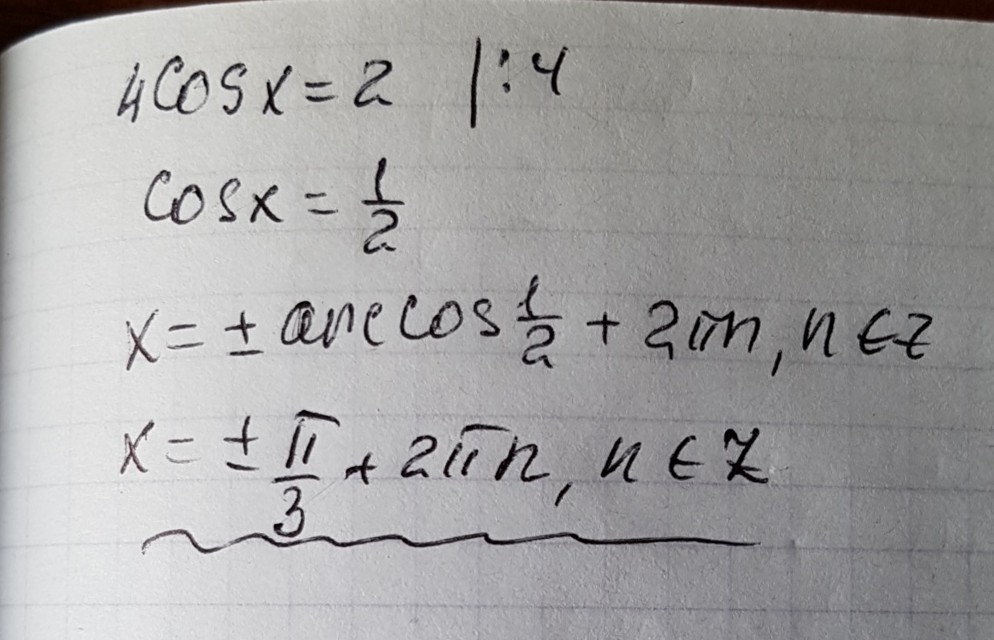 4cosx=2 |:4
cosx = 1/2
x = ± arccos 1/2 + 2πn, n ∈ Z
x = ± π/3 + 2πn, n ∈ Z